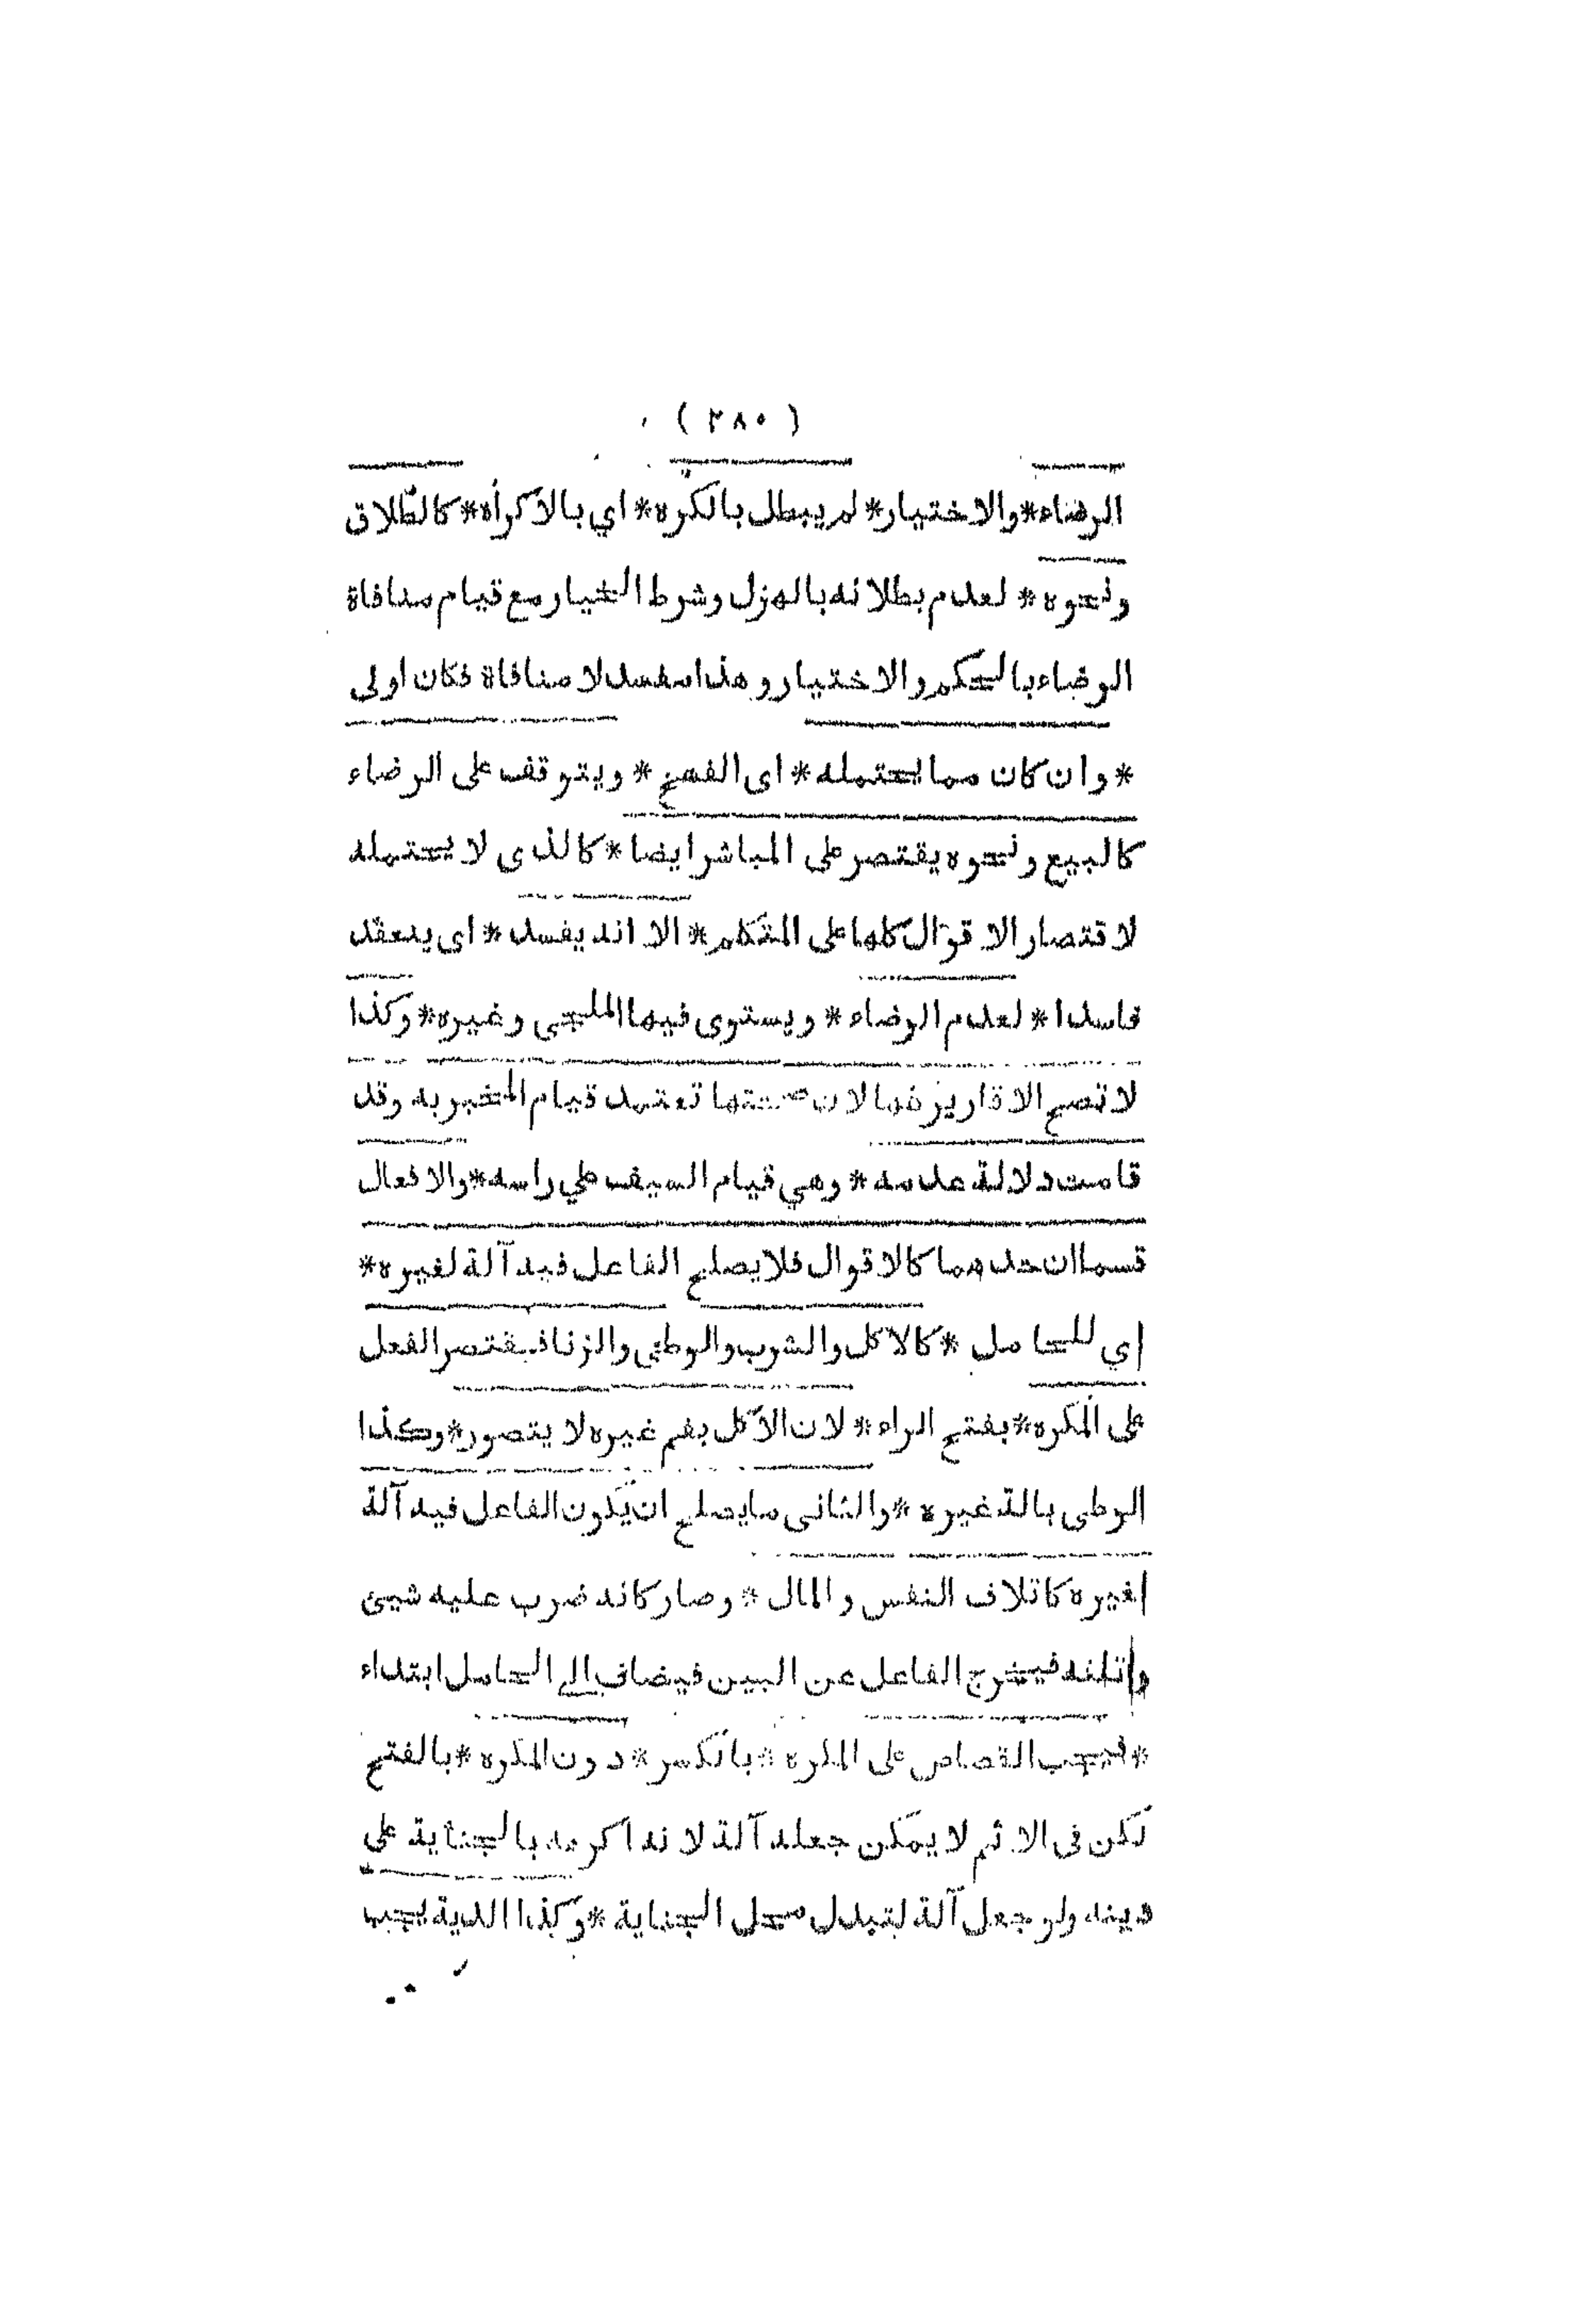 ( ٢٨٠ )
الرضاء*والاختيار* لم يبطل بالكره* اي بالاكراه* كالطلاق
ونحوه * لعدم بطلانه بالهزل وشرط الخيار مع قيام منافاة
الرضاء بالحكم والاختيار وهذا مفسد لا منافاة فكان اولى
* وان كان مما يحتمله * اى الفسخ * ويتوقف على الرضاء
كالبيع ونحوه يقتصر على المباشر ايضا * كالذى لا يحتمله
لاقتصار الاقوال كلها على المتكلم * الا انه يفسد * اى ينعقد
فاسدا * لعدم الرضاء * ويستوى فيها الملجى وغيره* وكذا
لا تصح الاقارير فيها لان صحتها تعتمد قيام المخبر به وقد
قامت دلالة عدمه * وهي قيام السيف على راسه* والافعال
قسمان احدهما كالاقوال فلا يصلح الفاعل فيه آلة لغيره *
اي للحامل * كالاكل والشرب والوطئ والزنا فيقتصر الفعل
على المكره* بفتح الراء * لان الاكل بفم غيره لا يتصور* وكذا
الوطى بالة غيره * والثانى ما يصلح ان يكون الفاعل فيه آلة
لغيره كاتلاف النفس والمال * وصار كانه ضرب عليه شيئ
واتلفه فيخرج الفاعل عن البين فيضاف الى الحامل ابتداء
* فيجب القصاص على المكره * بالكسر * دون المكره * بالفتح
لكن فى الاثم لا يمكن جعله آلة لانه اكرهه بالجناية على
دينه ولو جعل آلة لتبدل محل الجناية * وكذا الدية يجب